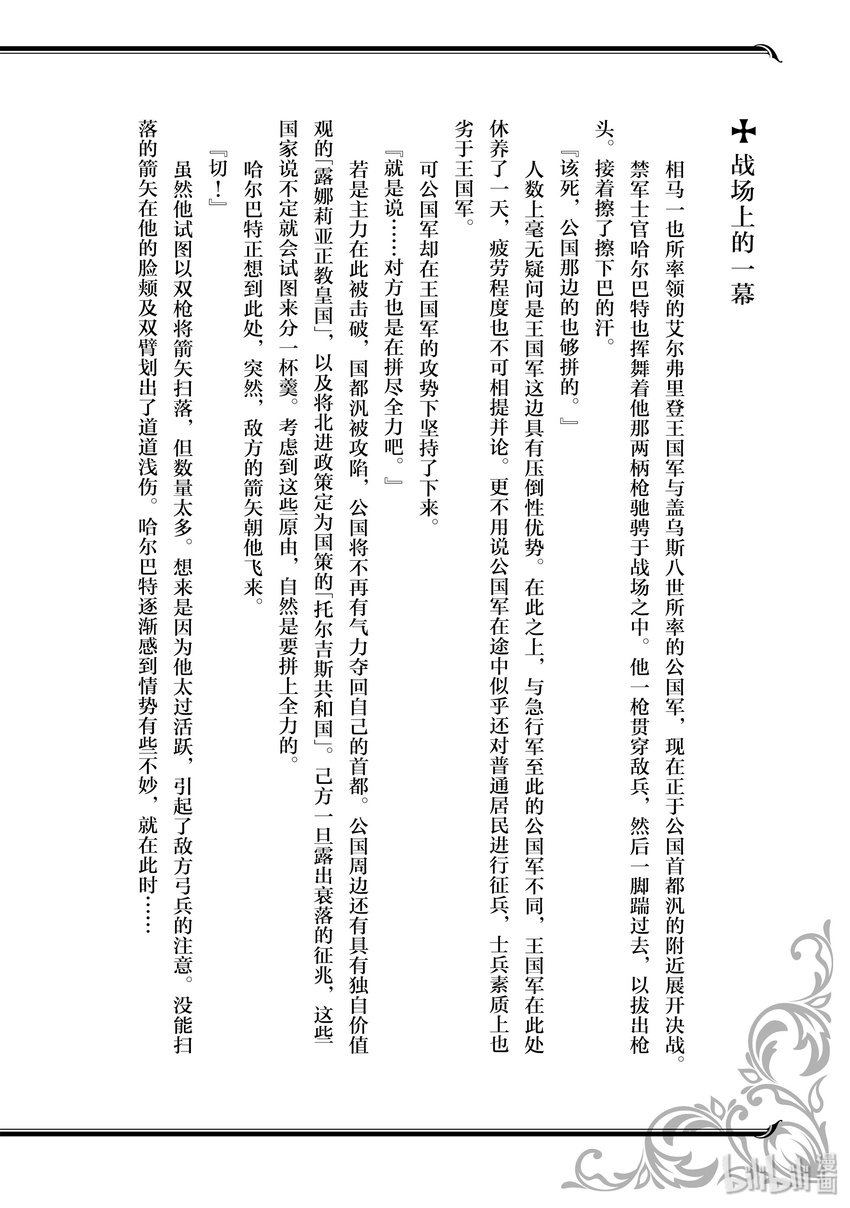 ✠ 战场上的一幕
相马一也所率领的艾尔弗里登王国军与盖乌斯八世所率的公国军，现在正于公国首都汎的附近展开决战。
禁军士官哈尔巴特也挥舞着他那两柄枪驰骋于战场之中。他一枪贯穿敌兵，然后一脚踹过去，以拔出枪
头。接着擦了擦下巴的汗。
『该死，公国那边的也够拼的。』
人数上毫无疑问是王国军这边具有压倒性优势。在此之上，与急行军至此的公国军不同，王国军在此处
休养了一天，疲劳程度也不可相提并论。更不用说公国军在途中似乎还对普通居民进行征兵，士兵素质上也
劣于王国军。
可公国军却在王国军的攻势下坚持了下来。
『就是说……对方也是在拼尽全力吧。』
若是主力在此被击破，国都汎被攻陷，公国将不再有气力夺回自己的首都。公国周边还有具有独自价值
观的「露娜莉亚正教皇国」，以及将北进政策定为国策的「托尔吉斯共和国」。己方一旦露出衰落的征兆，这些
国家说不定就会试图来分一杯羹。考虑到这些原由，自然是要拼上全力的。
哈尔巴特正想到此处，突然，敌方的箭矢朝他飞来。
『切！』
虽然他试图以双枪将箭矢扫落，但数量太多。想来是因为他太过活跃，引起了敌方弓兵的注意。没能扫
落的箭矢在他的脸颊及双臂划出了道道浅伤。哈尔巴特逐渐感到情势有些不妙，就在此时……
bilibili漫画